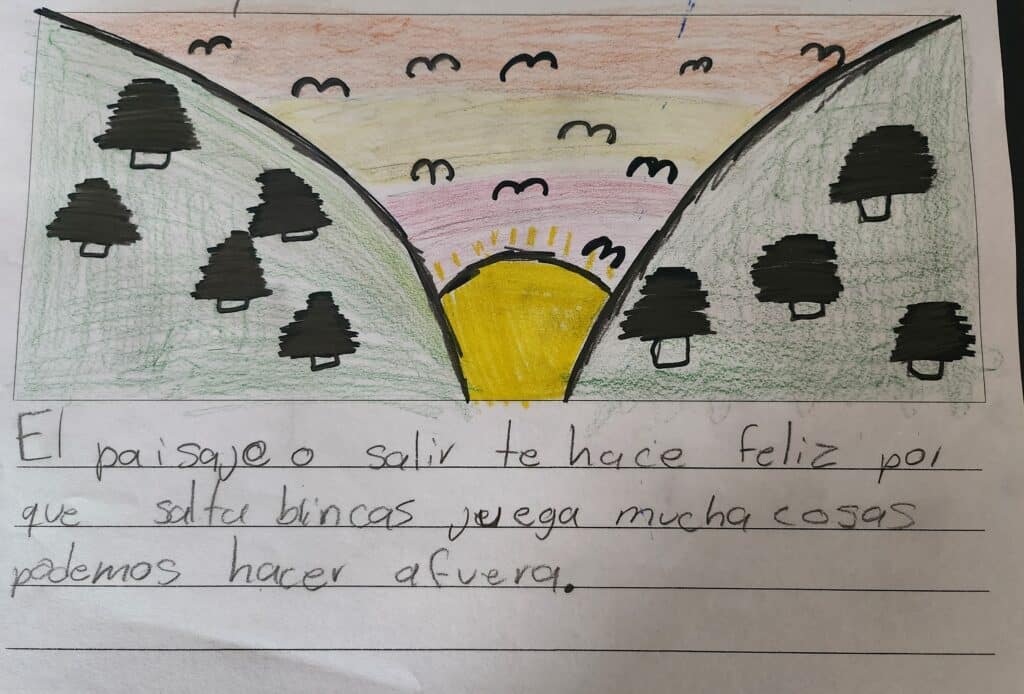 El paisaje o salir te hace feliz por
que salta brincas juega mucha cosas
podemos hacer afuera.